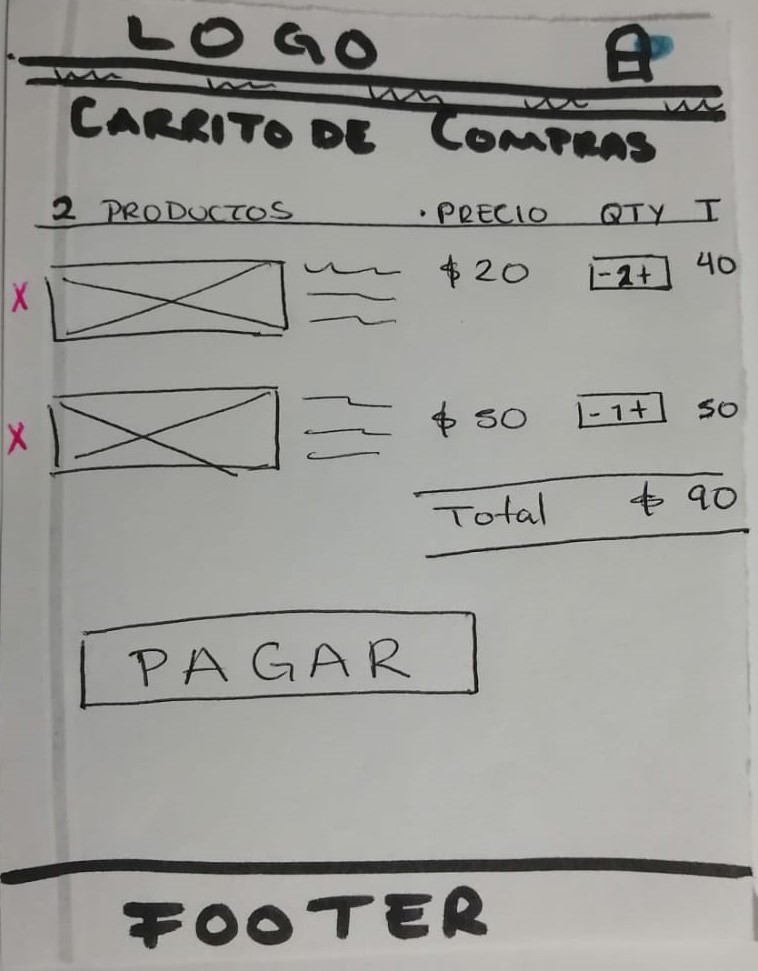 LOGO
CARRITO DE COMPRAS
2 PRODUCTOS · PRECIO QTY T
X $ 20 -2+ 40
X $ 50 -1+ 50
Total $ 90
PAGAR
FOOTER